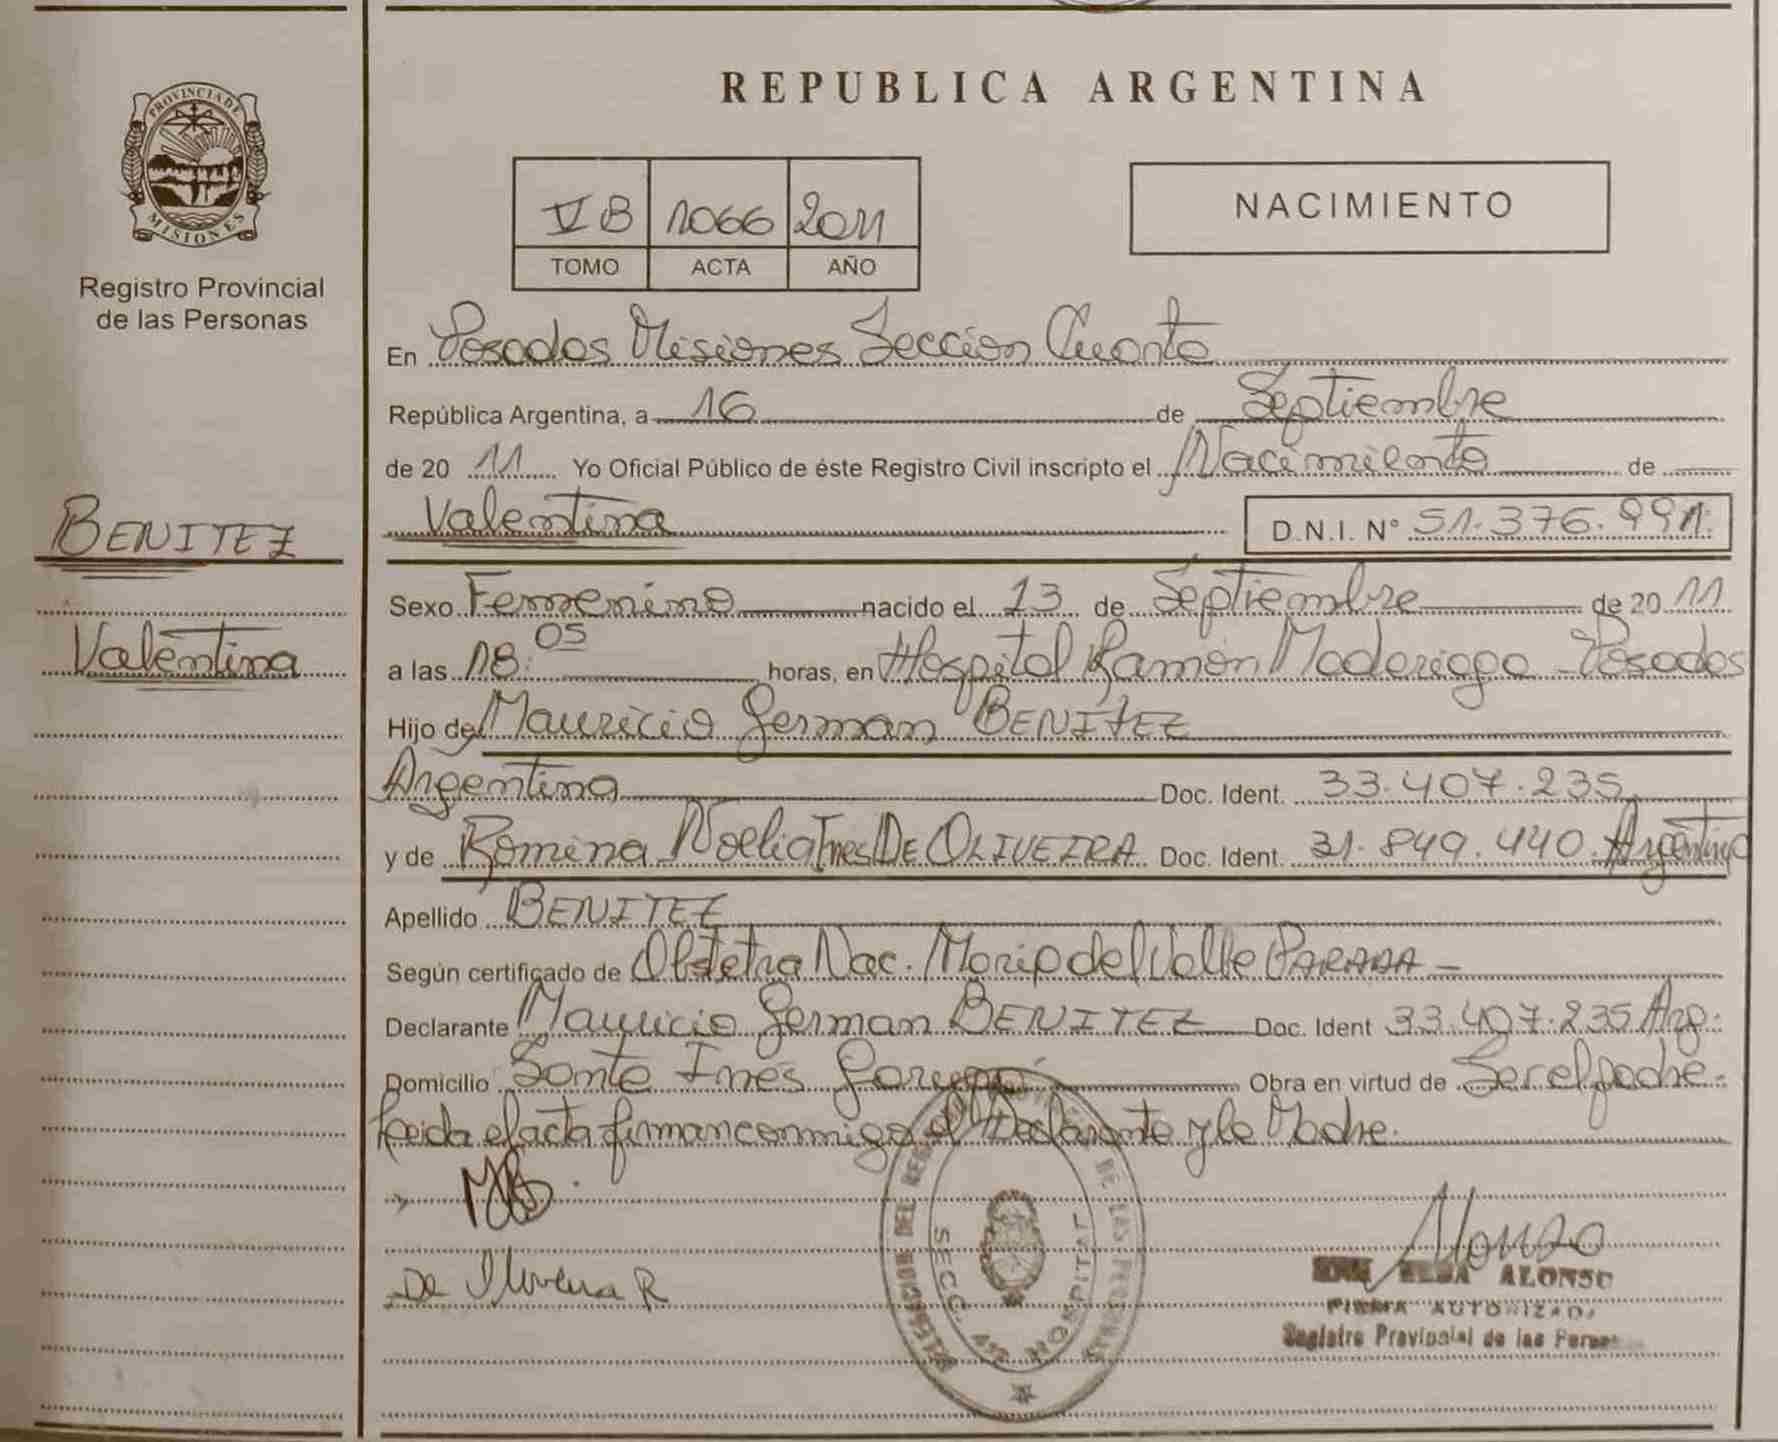 REPUBLICA ARGENTINA
PROVINCIA DE MISIONES
Registro Provincial
de las Personas
V B 1066 2011
TOMO ACTA AÑO
NACIMIENTO
En Posadas Misiones Sección Cuarta
República Argentina, a 16 de Septiembre
de 20 11 Yo Oficial Público de éste Registro Civil inscripto el Nacimiento de
BENITEZ
Valentina
Valentina D.N.I. Nº 51.376.991.
Sexo Femenino nacido el 13 de Septiembre de 20 11
a las 18:05 horas, en Hospital Ramón Madariaga - Posadas
Hijo de Mauricio German BENÍTEZ
Argentina Doc. Ident. 33.407.235
y de Romina Noelia Ines DE OLIVEIRA Doc. Ident. 31.849.440. Argentina
Apellido BENITEZ
Según certificado de Obstetra Nac. María del Valle PARADA -
Declarante Mauricio German BENITEZ Doc. Ident 33.407.235 Arg.
Domicilio Santa Inés Garupá Obra en virtud de Ser el padre.
Leida el acta firman conmigo el Declarante y la Madre.
MB.
De Oliveira R
SECC. HOSPITAL
DE LAS PERSONAS
Alonso
ELSA ALONSO
FIRMA AUTORIZADA
Registro Provincial de las Personas